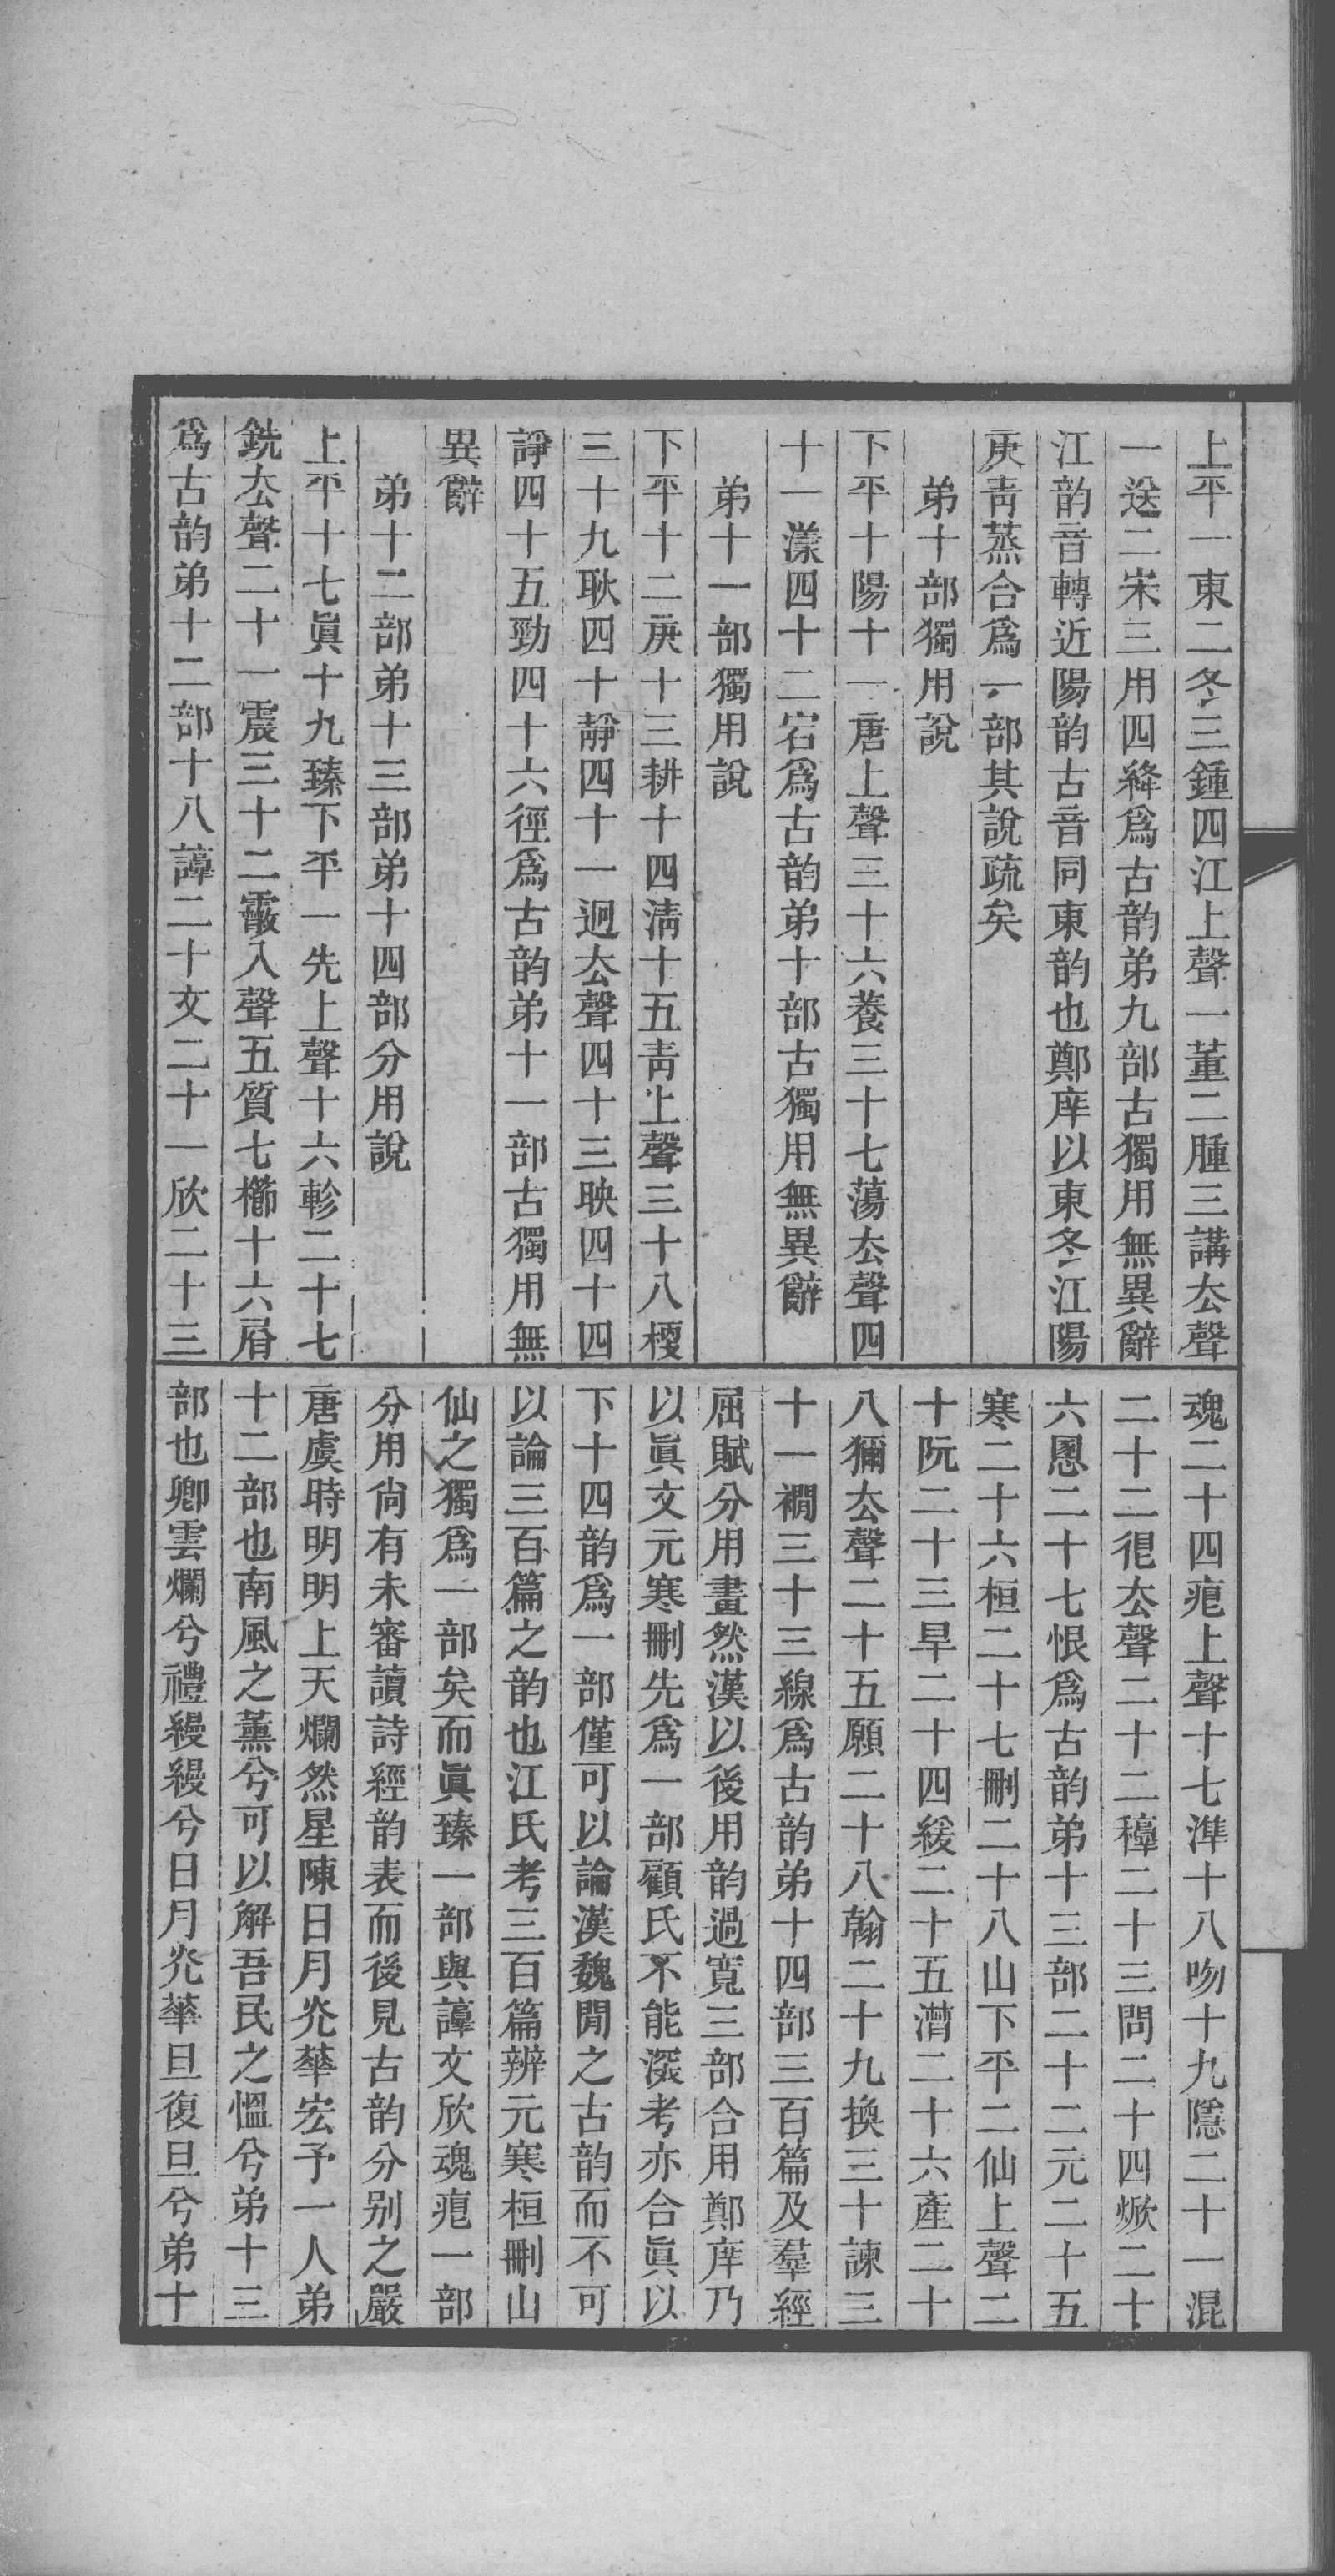 上平一東二冬三鍾四江上聲一董二腫三講厺聲
一送二宋三用四絳爲古韵弟九部古獨用無異辭
江韵音轉近陽韵古音同東韵也鄭庠以東冬江陽
庚靑蒸合爲一部其說疏矣
弟十部獨用說
下平十陽十一唐上聲三十六養三十七蕩厺聲四
十一漾四十二宕爲古韵弟十部古獨用無異辭
弟十一部獨用說
下平十二庚十三耕十四淸十五靑上聲三十八梗
三十九耿四十靜四十一迥厺聲四十三映四十四
諍四十五勁四十六徑爲古韵弟十一部古獨用無
異辭
弟十二部弟十三部弟十四部分用說
上平十七眞十九臻下平一先上聲十六軫二十七
銑厺聲二十一震三十二霰入聲五質七櫛十六屑
爲古韵弟十二部十八諄二十文二十一欣二十三
魂二十四痕上聲十七準十八吻十九隱二十一混
二十二很厺聲二十二稕二十三問二十四焮二十
六慁二十七恨爲古韵弟十三部二十二元二十五
寒二十六桓二十七刪二十八山下平二仙上聲二
十阮二十三旱二十四緩二十五潸二十六產二十
八獮厺聲二十五願二十八翰二十九換三十諫三
十一襉三十三線爲古韵弟十四部三百篇及羣經
屈賦分用畫然漢以後用韵過寬三部合用鄭庠乃
以眞文元寒刪先爲一部顧氏不能深考亦合眞以
下十四韵爲一部僅可以論漢魏閒之古韵而不可
以論三百篇之韵也江氏考三百篇辨元寒桓刪山
仙之獨爲一部矣而眞臻一部與諄文欣魂痕一部
分用尙有未審讀詩經韵表而後見古韵分别之嚴
唐虞時明明上天爛然星陳日月光華宏予一人弟
十二部也南風之薰兮可以解吾民之慍兮弟十三
部也卿雲爛兮禮縵縵兮日月光華旦復旦兮弟十